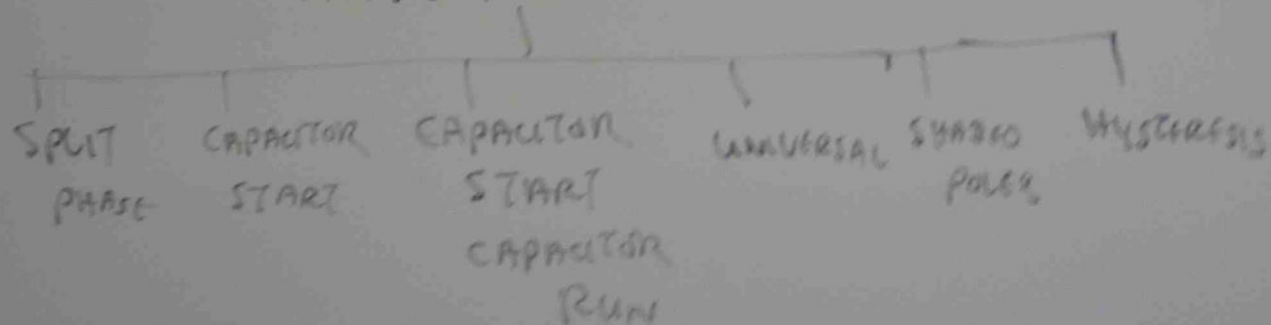 SPLIT
PHASE
CAPACITOR
START
CAPACITOR
START
CAPACITOR
RUN
UNIVERSAL
SHADED
POLES
HYSTERESIS